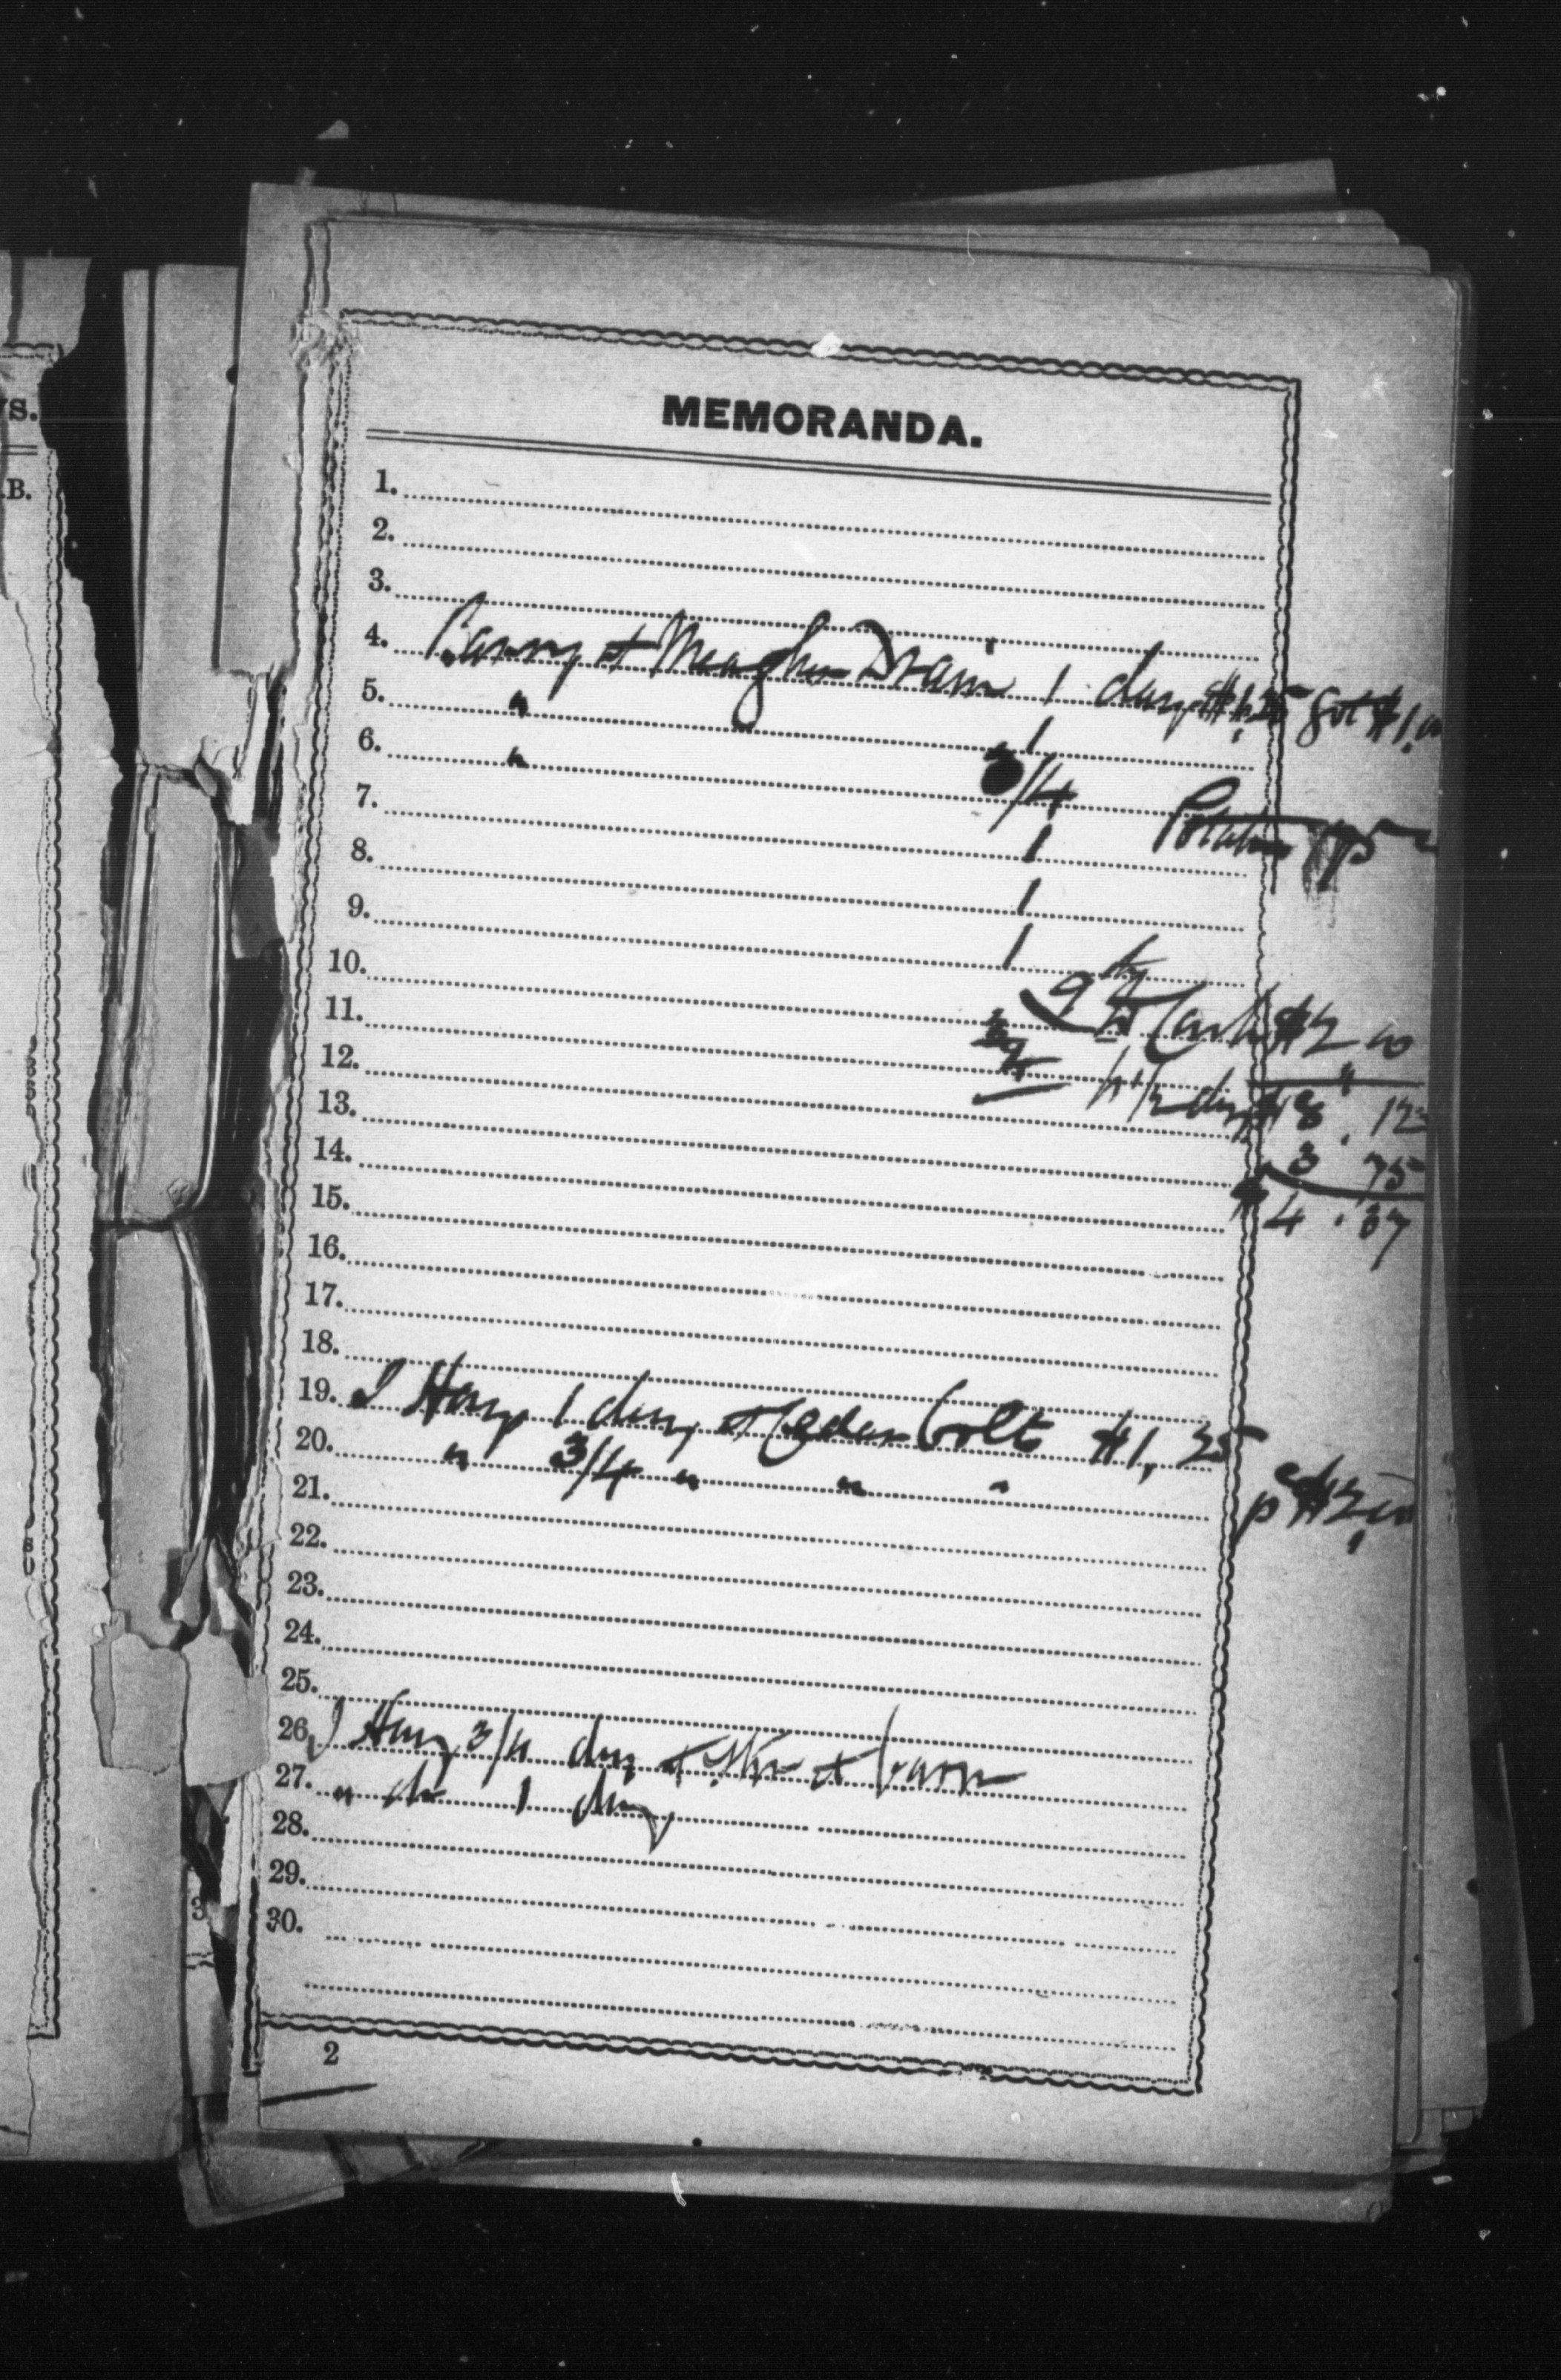 VS.
.B.
MEMORANDA.
1.
2.
3.
4. at Meagher Drain 1 day $1.25 got $1.
5. " " 1
6. " 3/4
7. 1 Potatoes 75
8. 1
9. 1
10. Cash $2 00
11. 1/2 day $8.12
12. 3 75
13. $4.37
14.
15.
16.
17.
18.
19. I Hany 1 day at Cedar bolts $1,25
20. " 3/4 " " " pd $2,00
21.
22.
23.
24.
25.
26. I Hany 3/4 day at at barn
27. " do 1 day
28.
29.
30.
3
2